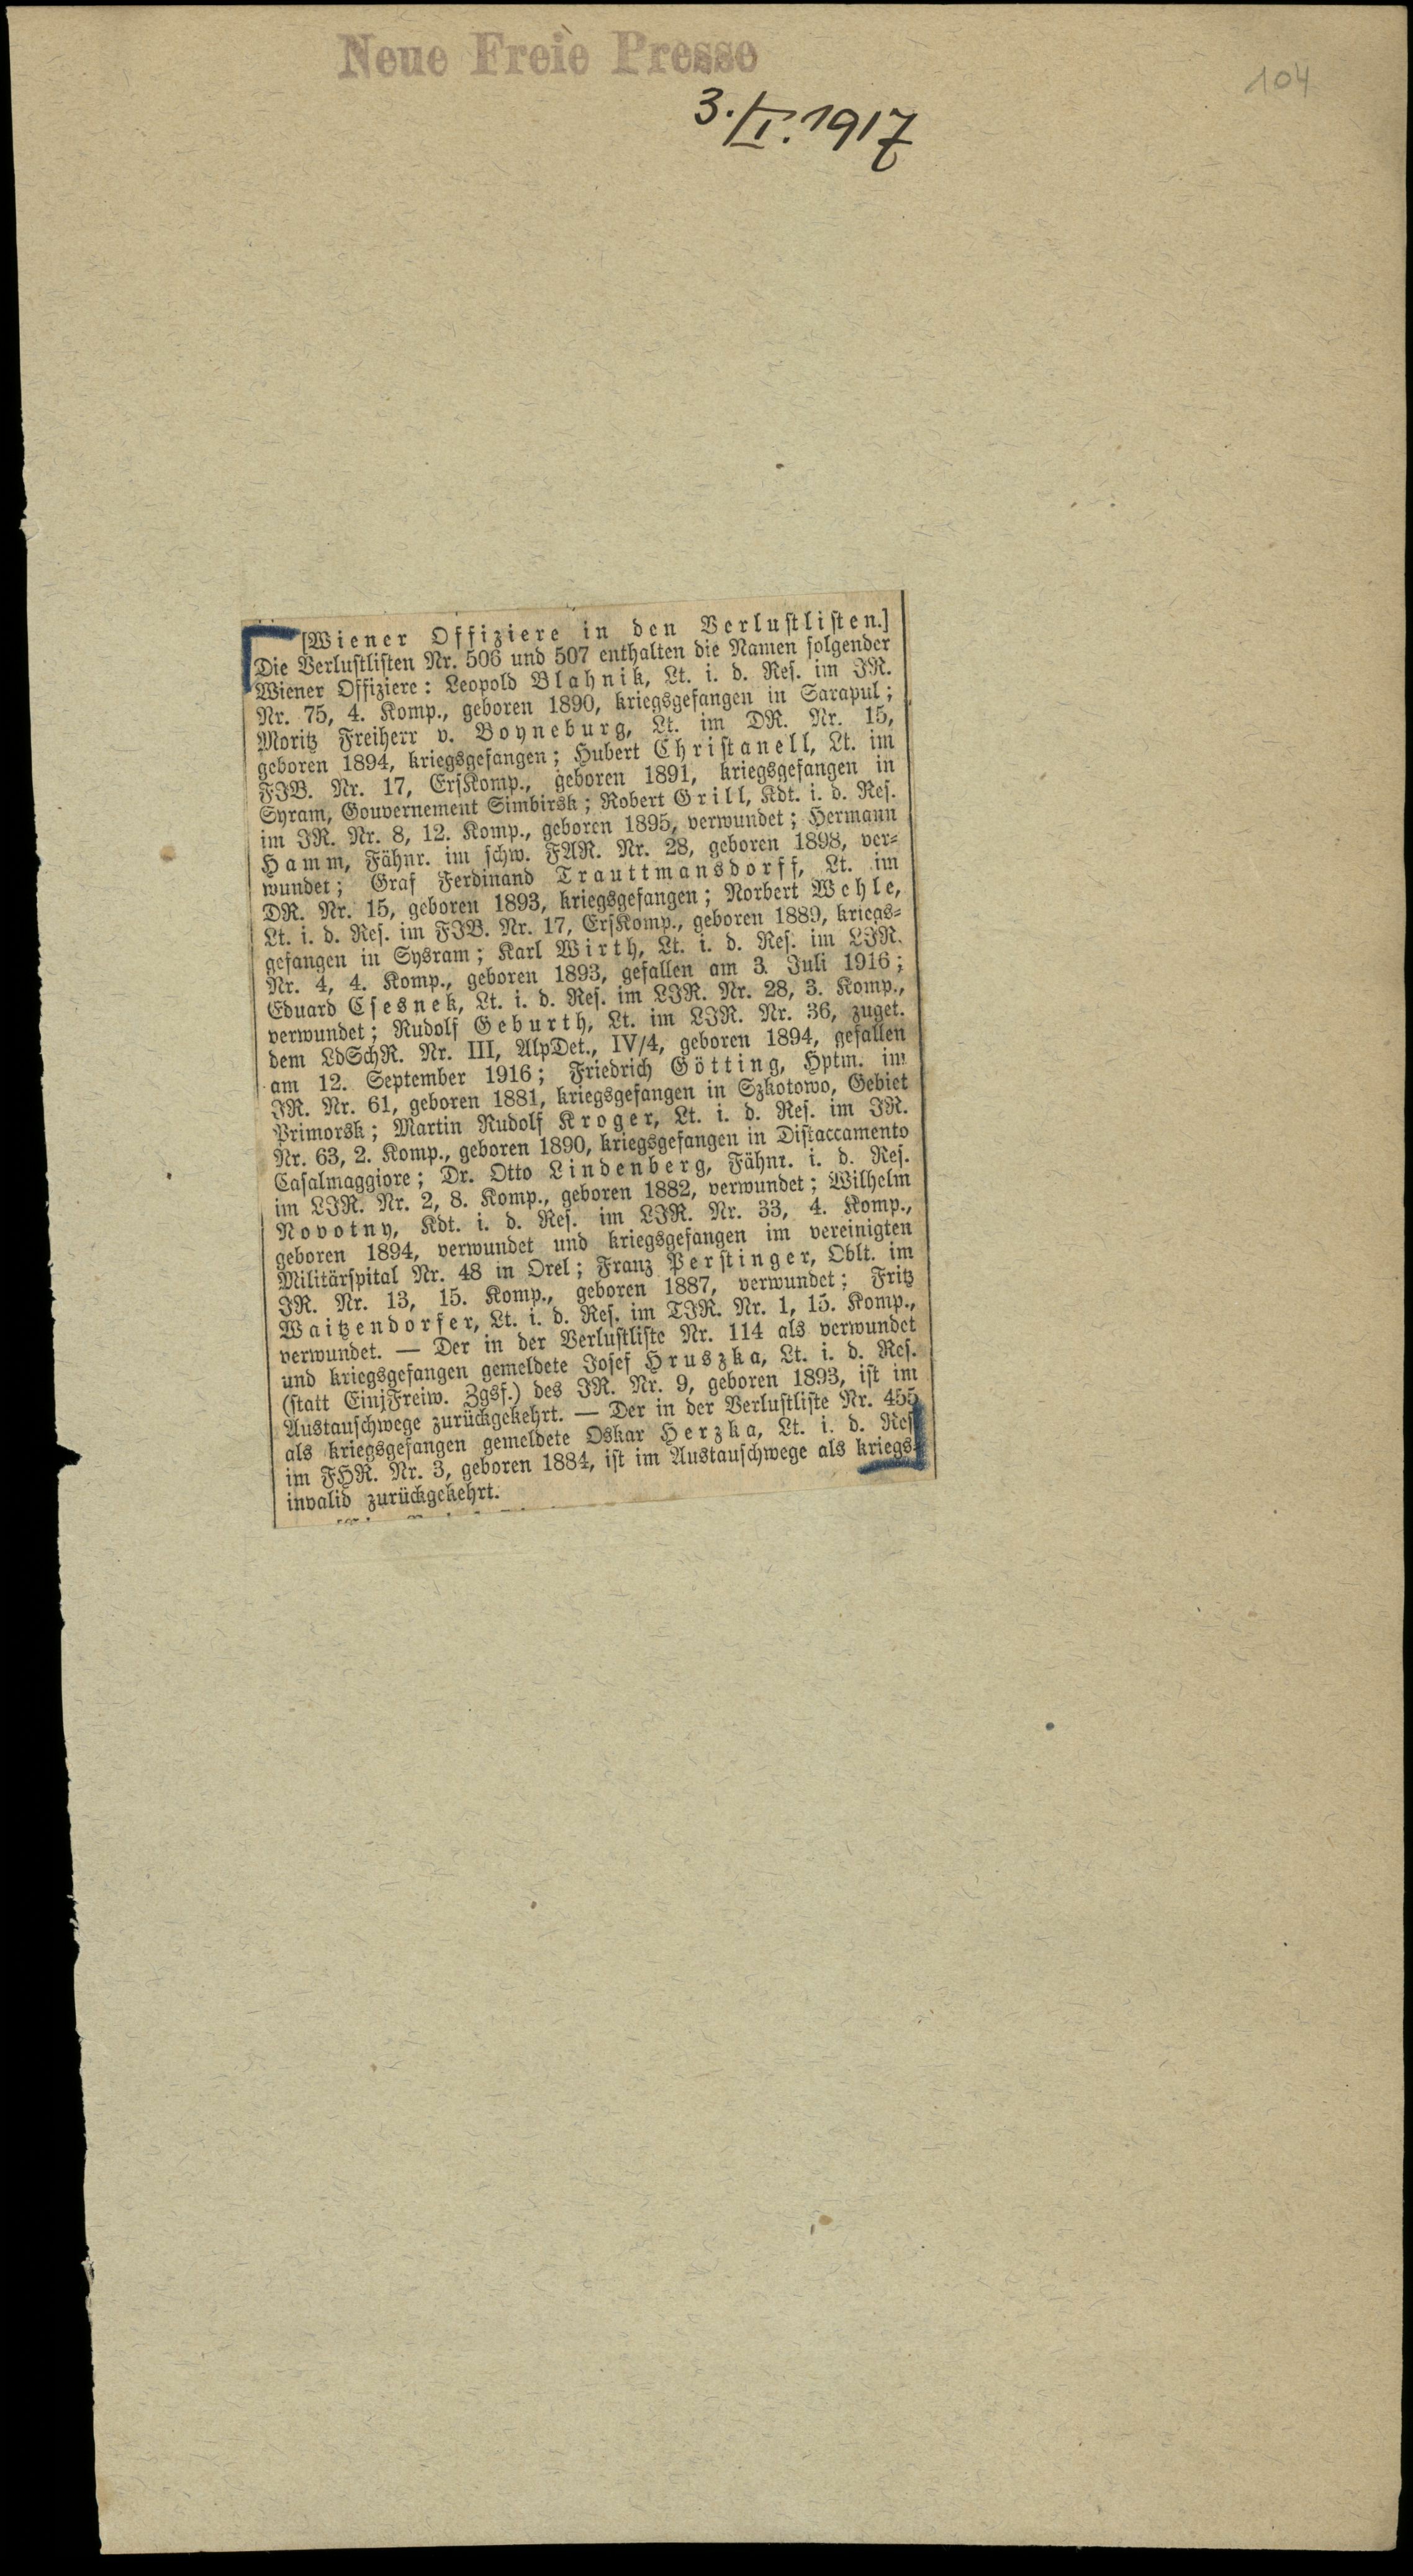 Neue Freie Presse
104
3./I. 1917
[Wiener Offiziere in den Verlustlisten.]
Die Verlustlisten Nr. 506 und 507 enthalten die Namen folgender
Wiener Offiziere: Leopold Blahnik, Lt. i. d. Res. im IR.
Nr. 75, 4. Komp., geboren 1890, kriegsgefangen in Sarapul;
Moritz Freiherr v. Boyneburg, Lt. im DR. Nr. 15,
geboren 1894, kriegsgefangen; Hubert Christanell, Lt. im
FJB. Nr. 17, ErsKomp., geboren 1891, kriegsgefangen in
Syram, Gouvernement Simbirsk; Robert Grill, Kdt. i. d. Res.
im IR. Nr. 8, 12. Komp., geboren 1895, verwundet; Hermann
Hamm, Fähnr. im schw. FAR. Nr. 28, geboren 1898, ver-
wundet; Graf Ferdinand Trauttmansdorff, Lt. im
DR. Nr. 15, geboren 1893, kriegsgefangen; Norbert Wehle,
Lt. i. d. Res. im FJB. Nr. 17, ErsKomp., geboren 1889, kriegs-
gefangen in Sysram; Karl Wirth, Lt. i. d. Res. im LIR.
Nr. 4, 4. Komp., geboren 1893, gefallen am 3. Juli 1916;
Eduard Csesnek, Lt. i. d. Res. im LIR. Nr. 28, 3. Komp.,
verwundet; Rudolf Geburth, Lt. im LIR. Nr. 36, zuget.
dem LdSchR. Nr. III, AlpDet., IV/4, geboren 1894, gefallen
am 12. September 1916; Friedrich Götting, Hptm. im
IR. Nr. 61, geboren 1881, kriegsgefangen in Szkotowo, Gebiet
Primorsk; Martin Rudolf Kroger, Lt. i. d. Res. im IR.
Nr. 63, 2. Komp., geboren 1890, kriegsgefangen in Distaccamento
Casalmaggiore; Dr. Otto Lindenberg, Fähnr. i. d. Res.
im LIR. Nr. 2, 8. Komp., geboren 1882, verwundet; Wilhelm
Novotny, Kdt. i. d. Res. im LIR. Nr. 33, 4. Komp.,
geboren 1894, verwundet und kriegsgefangen im vereinigten
Militärspital Nr. 48 in Orel; Franz Perstinger, Oblt. im
IR. Nr. 13, 15. Komp., geboren 1887, verwundet; Fritz
Waitzendorfer, Lt. i. d. Res. im TJR. Nr. 1, 15. Komp.,
verwundet. — Der in der Verlustliste Nr. 114 als verwundet
und kriegsgefangen gemeldete Josef Hruszka, Lt. i. d. Res.
(statt EinjFreiw. Zgsf.) des IR. Nr. 9, geboren 1893, ist im
Austauschwege zurückgekehrt. — Der in der Verlustliste Nr. 455
als kriegsgefangen gemeldete Oskar Herzka, Lt. i. d. Res.
im FHR. Nr. 3, geboren 1884, ist im Austauschwege als kriegs-
invalid zurückgekehrt.